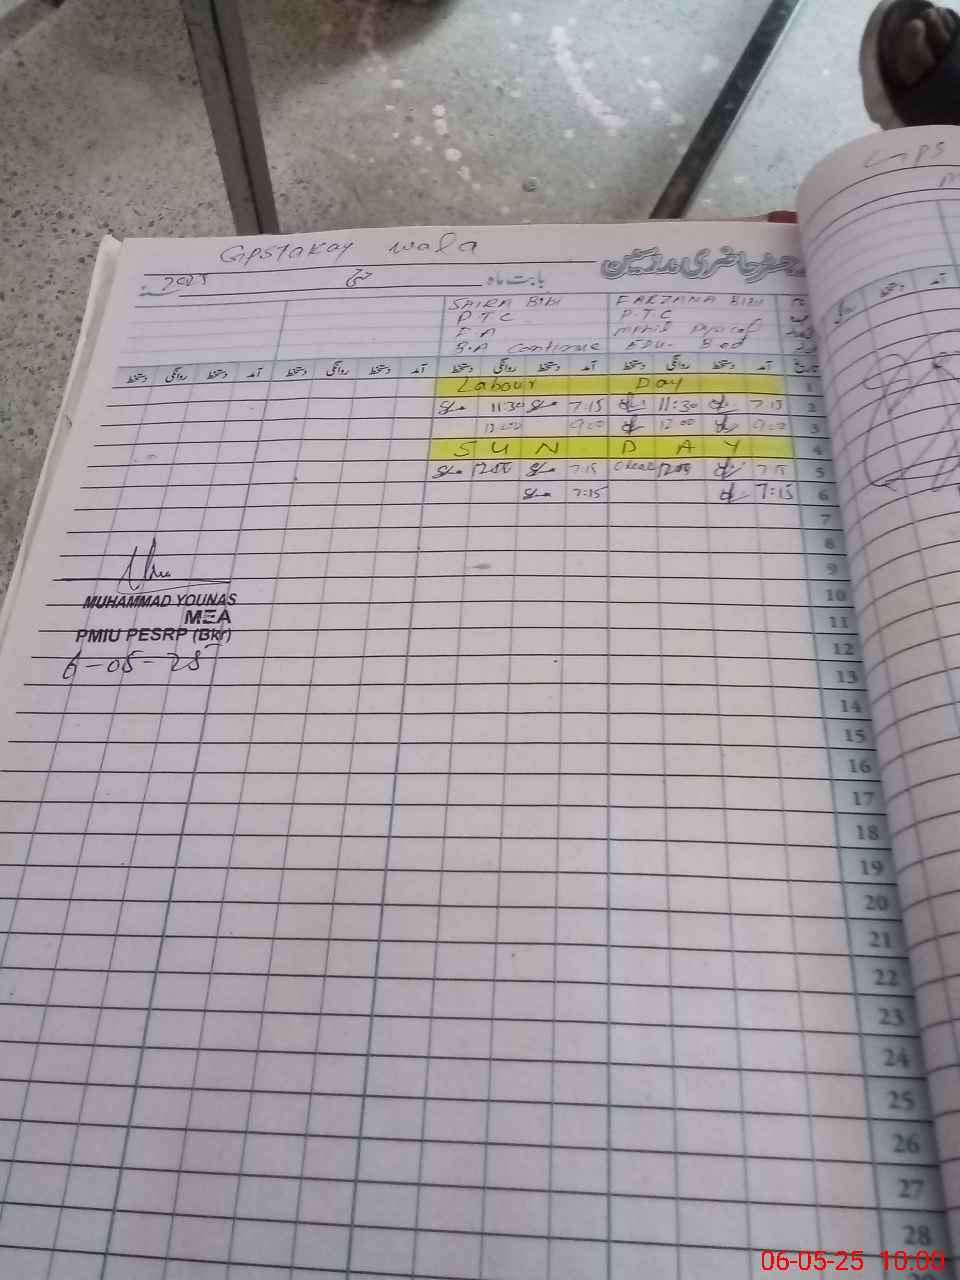 GPS Takay wala
رجسٹر حاضری مدرسین
بابت ماہ مئی 2025
SAIRA BIBI FARZANA BIBI
P.T.C P.T.C
F.A mphil
B.A Continue EDU- Bed
تاریخ آمد دستخط روانگی دستخط آمد دستخط روانگی دستخط آمد دستخط روانگی دستخط آمد دستخط روانگی دستخط
Labour Day 1
11:30 7:15 11:30 7:15 2
12:00 9:00 12:00 9:00 3
S U N D A Y 4
7:15 7:15 5
7:15 7:15 6
7
8
9
10
11
12
13
14
15
16
17
18
19
20
21
22
23
24
25
26
27
28
MUHAMMAD YOUNAS
MEA
PMIU PESRP (Bkr)
6-05-25
GPS
آمد
دستخط
روانگی
06-05-25 10.00